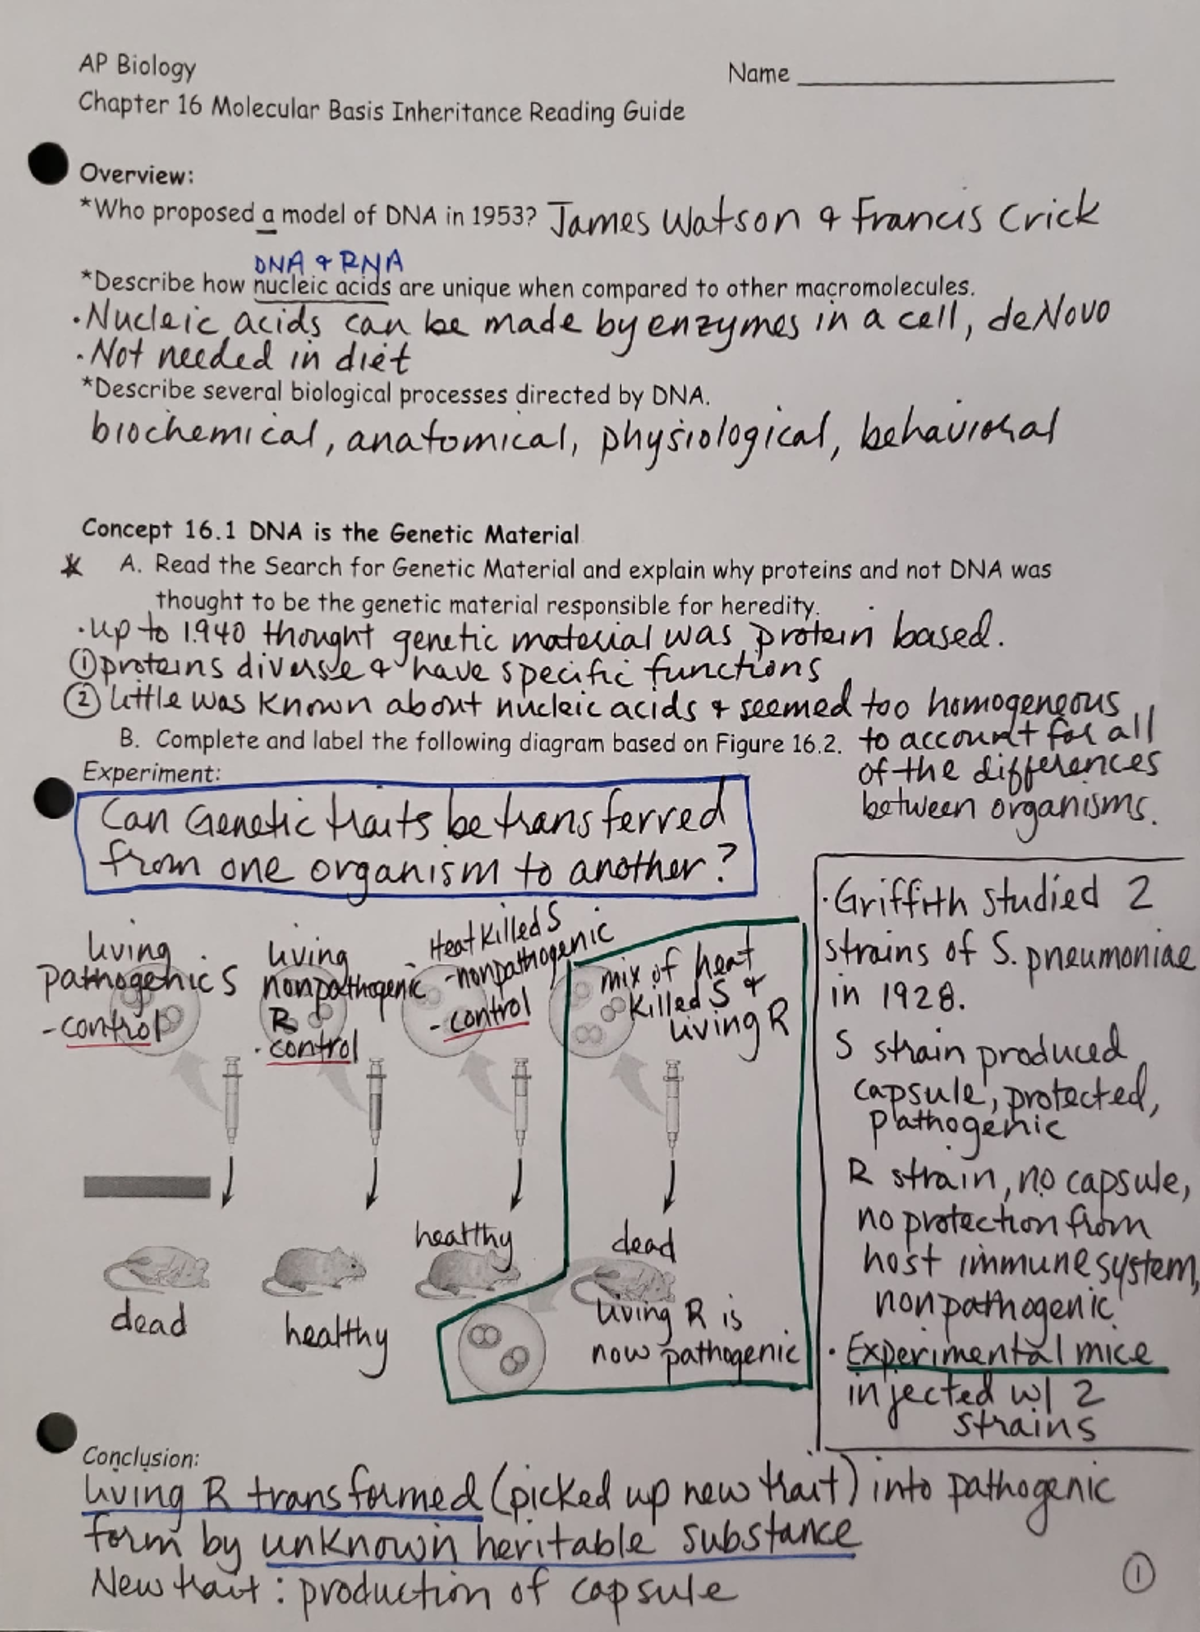 AP Biology
Name
Chapter 16 Molecular Basis Inheritance Reading Guide
Overview:
*Who proposed a model of DNA in 1953? James Watson & Francis Crick
DNA & RNA
*Describe how nucleic acids are unique when compared to other macromolecules.
·Nucleic acids can be made by enzymes in a cell, deNovo
·Not needed in diet
*Describe several biological processes directed by DNA.
biochemical, anatomical, physiological, behavioral
Concept 16.1 DNA is the Genetic Material
* A. Read the Search for Genetic Material and explain why proteins and not DNA was
thought to be the genetic material responsible for heredity.
·up to 1940 thought genetic material was protein based.
① proteins diverse & have specific functions
② little was known about nucleic acids & seemed too homogeneous
B. Complete and label the following diagram based on Figure 16.2.
to account for all
of the differences
between organisms.
Experiment:
Can Genetic traits be transferred
from one organism to another?
living
pathogenic S
-control
living
nonpathogenic
R
·control
Heat Killed S
-nonpathogenic
-control
mix of heat
killed S &
living R
dead
healthy
healthy
dead
living R is
now pathogenic
·Griffith studied 2
strains of S. pneumoniae
in 1928.
S strain produced
capsule, protected,
pathogenic
R strain, no capsule,
no protection from
host immune system,
nonpathogenic.
·Experimental mice
injected w/ 2
strains
Conclusion:
living R transformed (picked up new trait) into pathogenic
form by unknown heritable substance
New trait: production of capsule
①